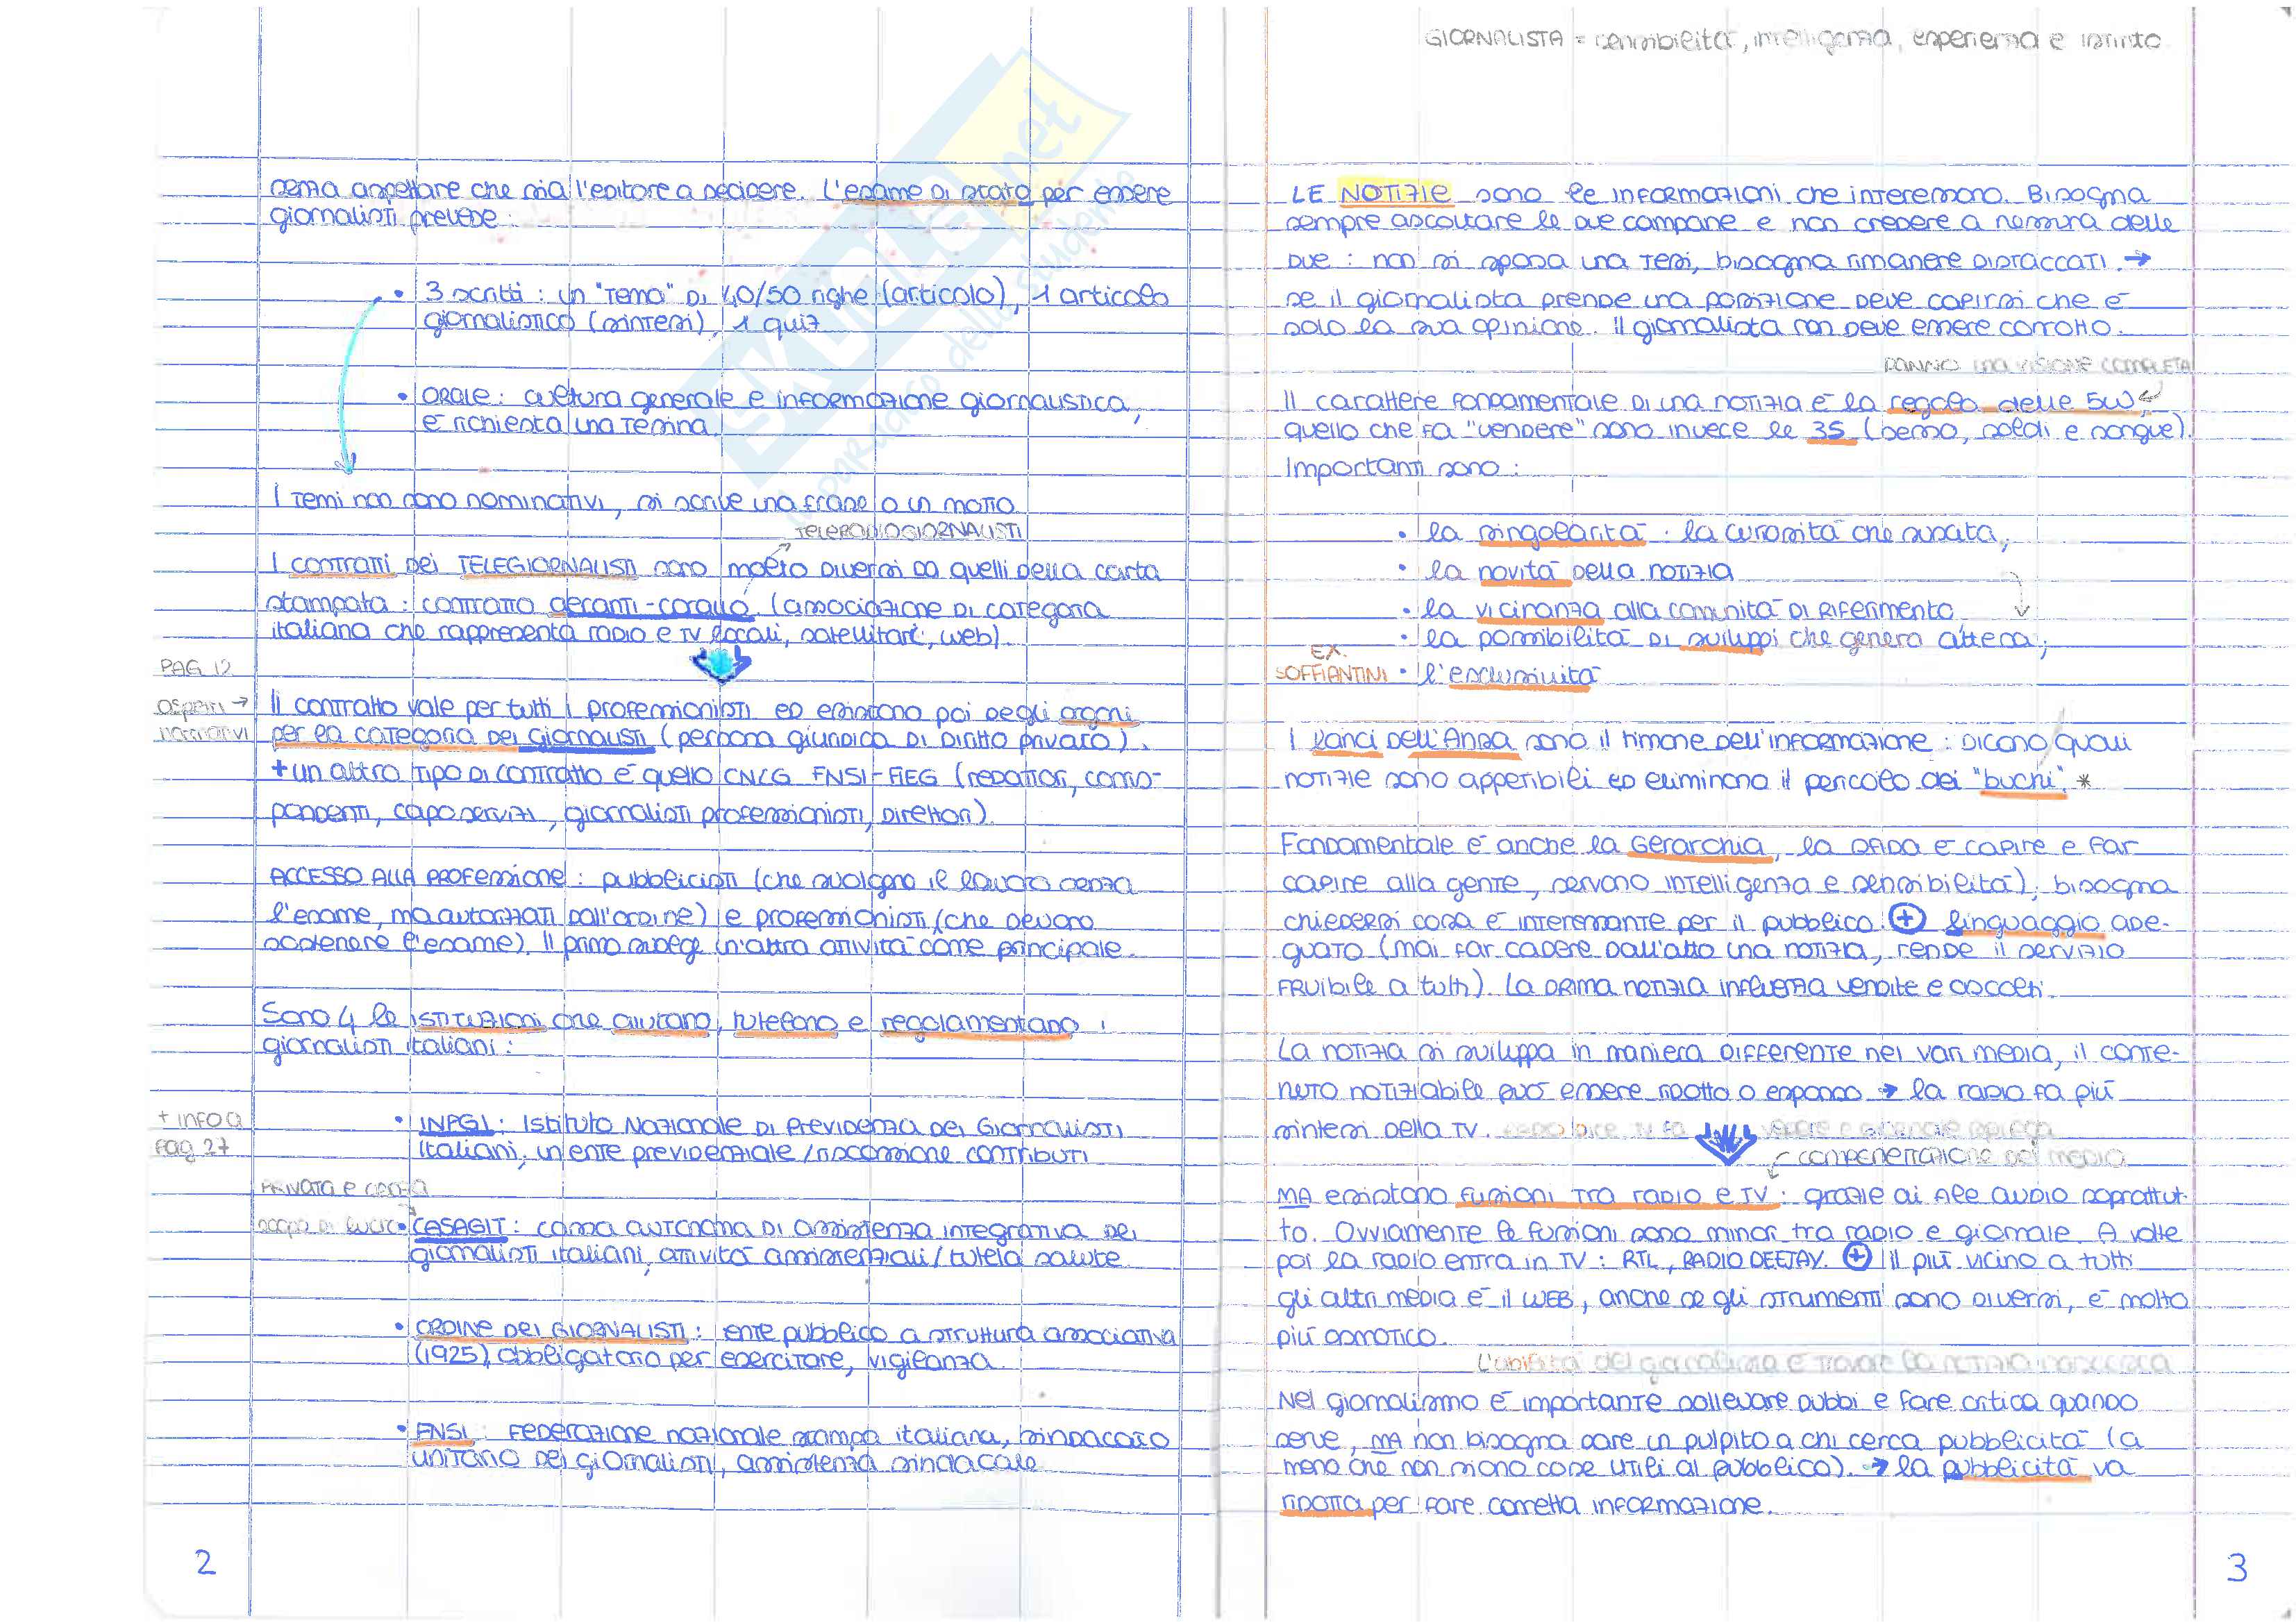 senza aspettare che sia l'editore a decidere. L'esame di stato per essere
giornalisti prevede:
• 3 scritti: un "tema" di 40/50 righe (articolo), 1 articolo
giornalistico (sintesi), 1 quiz
• ORALE: cultura generale e informazione giornalistica,
è richiesta una tesina.
I temi non sono nominativi, si scrive una frase o un motto
TELERADIOGIORNALISTI
I contratti dei TELEGIORNALISTI sono molto diversi da quelli della carta
stampata: contratto aeranti-corallo (associazione di categoria
italiana che rappresenta radio e TV locali, satellitari, web).
PAG 12
Il contratto vale per tutti i professionisti ed esistono poi degli organi
per la categoria dei giornalisti (persona giuridica di diritto privato).
+ un altro tipo di contratto è quello CNLG FNSI-FIEG (redattori, corris-
pondenti, capo servizi, giornalisti professionisti, direttori).
ACCESSO ALLA PROFESSIONE: pubblicisti (che svolgono il lavoro senza
l'esame, ma autorizzati dall'ordine) e professionisti (che devono
sostenere l'esame). Il primo svolge un'altra attività come principale.
Sono 4 le istituzioni che aiutano, tutelano e regolamentano i
giornalisti italiani:
+ INFO a
Pag 27
• INPGI: Istituto Nazionale di Previdenza dei Giornalisti
Italiani, un ente previdenziale/riscossione contributi
PRIVATA e senza
scopo di lucro
• CASAGIT: cassa autonoma di assistenza integrativa dei
giornalisti italiani, attività assistenziali/tutela salute
• ORDINE DEI GIORNALISTI: ente pubblico a struttura associativa
(1925) obbligatorio per esercitare, vigilanza
• FNSI: Federazione nazionale stampa italiana, sindacato
unitario dei giornalisti, assistenza sindacale
2
GIORNALISTA = sensibilità, intelligenza, esperienza e istinto
LE NOTIZIE sono le informazioni che interessano. Bisogna
sempre ascoltare le due campane e non credere a nessuna delle
due: non si sposa una tesi, bisogna rimanere distaccati. →
se il giornalista prende una posizione deve capirsi che è
solo la sua opinione. Il giornalista non deve essere corrotto.
DANNO una VISIONE COMPLETA
Il carattere fondamentale di una notizia è la regola delle 5W,
quello che fa "vendere" sono invece le 3S (sesso, soldi e sangue).
Importanti sono:
• la singolarità: la curiosità che suscita;
• la novità della notizia
• la vicinanza alla comunità di riferimento
• la possibilità di sviluppi che genera attesa;
EX.
SOFFIANTINI • l'esclusività
I lanci dell'Ansa sono il timone dell'informazione: dicono quali
notizie sono appetibili ed eliminano il pericolo dei "buchi". *
Fondamentale è anche la gerarchia, la sfida è capire e far
capire alla gente, servono intelligenza e sensibilità); bisogna
chiedersi cosa è interessante per il pubblico. + linguaggio ade-
guato (mai far cadere dall'alto una notizia, rende il servizio
fruibile a tutti). La prima notizia influenza vendite e ascolti.
La notizia si sviluppa in maniera differente nei vari media, il conte-
nuto notiziabile può essere ridotto o espanso → la radio fa più
sintesi della TV.
COMPENETRAZIONE DEI MEDIA
MA esistono fusioni tra radio e TV: grazie ai file audio soprattut-
to. Ovviamente le fusioni sono minori tra radio e giornale. A volte
poi la radio entra in TV: RTL, RADIO DEEJAY. + Il più vicino a tutti
gli altri media è il WEB, anche se gli strumenti sono diversi, è molto
più osmotico.
L'abilità del giornalismo è trovare la notizia nascosta
Nel giornalismo è importante sollevare dubbi e fare critica quando
serve, MA non bisogna dare un pulpito a chi cerca pubblicità (a
meno che non siano cose utili al pubblico). → la pubblicità va
ridotta per fare corretta informazione.
3